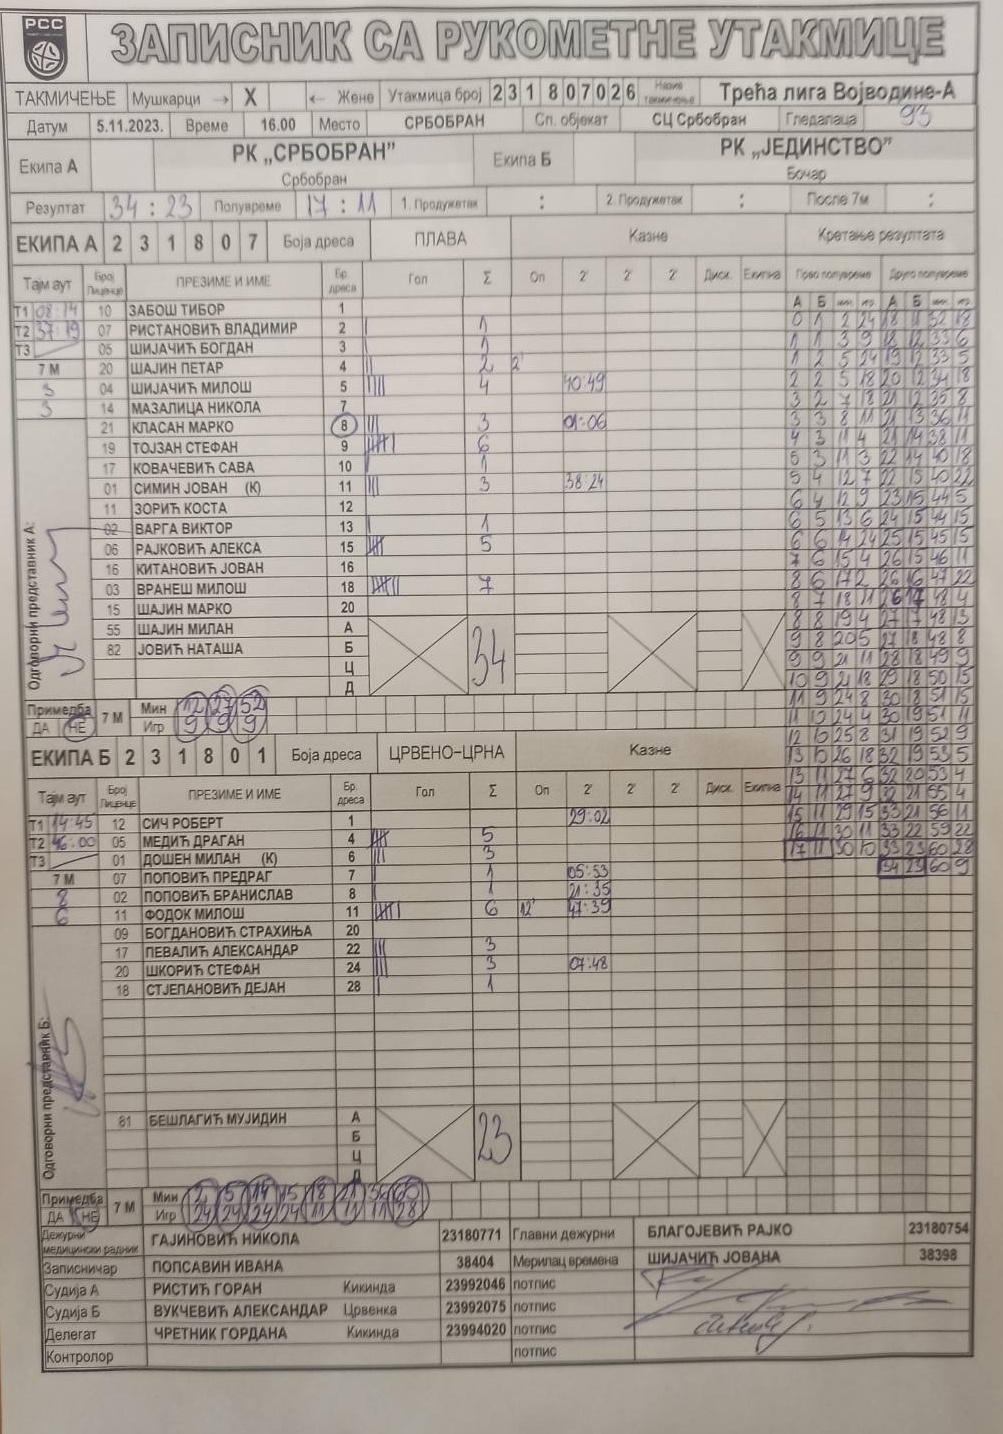 РСС
ЗАПИСНИК СА РУКОМЕТНЕ УТАКМИЦЕ
ТАКМИЧЕЊЕ Мушкарци → X ← Жене Утакмица број 2 3 1 8 0 7 0 2 6 Назив такмичења Трећа лига Војводине-А
Датум 5.11.2023. Време 16.00 Место СРБОБРАН Сп. објекат СЦ Србобран Гледалаца 93
Екипа А РК „СРБОБРАН" Србобран Екипа Б РК „ЈЕДИНСТВО" Бочар
Резултат 34 : 23 Полувреме 17 : 11 1. Продужетак : 2. Продужетак : После 7м :
ЕКИПА А 2 3 1 8 0 7 Боја дреса ПЛАВА Казне Кретање резултата
Тајм аут Број Лиценце ПРЕЗИМЕ И ИМЕ Бр. дреса Гол Σ Оп 2' 2' 2' Диск. Екипна Прво полувреме Друго полувреме
А Б мин игр. А Б мин игр.
Т1 08:14 10 ЗАБОШ ТИБОР 1 0 1 2 24 18 11 32 18
Т2 37:19 07 РИСТАНОВИЋ ВЛАДИМИР 2 | 1 1 1 3 9 18 12 33 6
Т3 05 ШИЈАЧИЋ БОГДАН 3 | 1 1 2 5 24 19 12 33 5
7 М 20 ШАЈИН ПЕТАР 4 || 2 2' 2 2 5 18 20 12 34 18
3 04 ШИЈАЧИЋ МИЛОШ 5 |||| 4 40:49 3 2 7 18 21 12 35 8
3 14 МАЗАЛИЦА НИКОЛА 7 3 3 8 11 21 13 36 11
21 КЛАСАН МАРКО 8 ||| 3 01:06 4 3 11 4 21 14 38 11
19 ТОЈЗАН СТЕФАН 9 6 5 3 11 3 22 14 40 18
17 КОВАЧЕВИЋ САВА 10 | 1 5 4 12 7 22 15 40 22
01 СИМИН ЈОВАН (К) 11 ||| 3 38:24 6 4 12 9 23 15 44 5
11 ЗОРИЋ КОСТА 12 6 5 13 6 24 15 44 15
02 ВАРГА ВИКТОР 13 | 1 6 6 14 24 25 15 45 15
06 РАЈКОВИЋ АЛЕКСА 15 5 7 6 15 4 26 15 46 11
16 КИТАНОВИЋ ЈОВАН 16 8 6 17 2 26 16 47 22
03 ВРАНЕШ МИЛОШ 18 7 8 7 18 11 26 17 48 4
15 ШАЈИН МАРКО 20 8 8 19 4 27 17 48 13
55 ШАЈИН МИЛАН А 34 9 8 20 5 27 18 48 8
82 ЈОВИЋ НАТАША Б 9 9 21 11 28 18 49 9
Ц 10 9 21 18 29 18 50 15
Д 11 9 24 8 30 18 51 15
Одговорни представник А:
Примедба ДА НЕ 7 М Мин 12 27 52 11 10 24 4 30 19 51 11
Игр 9 9 9 12 10 25 8 31 19 52 9
ЕКИПА Б 2 3 1 8 0 1 Боја дреса ЦРВЕНО-ЦРНА Казне 13 10 26 18 32 19 53 5
13 11 27 6 32 20 53 4
Тајм аут Број Лиценце ПРЕЗИМЕ И ИМЕ Бр. дреса Гол Σ Оп 2' 2' 2' Диск. Екипна 14 11 27 9 32 21 55 4
Т1 14:45 12 СИЧ РОБЕРТ 1 29:02 15 11 29 15 33 21 56 11
Т2 46:00 05 МЕДИЋ ДРАГАН 4 5 16 11 30 11 33 22 59 22
Т3 01 ДОШЕН МИЛАН (К) 6 ||| 3 17 11 30 10 33 23 60 28
7 М 07 ПОПОВИЋ ПРЕДРАГ 7 | 1 05:53 34 23 60 9
8 02 ПОПОВИЋ БРАНИСЛАВ 8 | 1 21:35
6 11 ФОДОК МИЛОШ 11 6 12' 47:39
09 БОГДАНОВИЋ СТРАХИЊА 20
17 ПЕВАЛИЋ АЛЕКСАНДАР 22 ||| 3
20 ШКОРИЋ СТЕФАН 24 ||| 3 07:48
18 СТЈЕПАНОВИЋ ДЕЈАН 28 | 1
Одговорни представник Б:
81 БЕШЛАГИЋ МУЈИДИН А 23
Б
Ц
Д
Примедба ДА НЕ 7 М Мин 2 5 14 15 18 21 36 60
Игр 24 24 24 24 11 11 11 28
Дежурни медицински радник ГАЈИНОВИЋ НИКОЛА 23180771 Главни дежурни БЛАГОЈЕВИЋ РАЈКО 23180754
Записничар ПОПСАВИН ИВАНА 38404 Мерилац времена ШИЈАЧИЋ ЈОВАНА 38398
Судија А РИСТИЋ ГОРАН Кикинда 23992046 потпис
Судија Б ВУКЧЕВИЋ АЛЕКСАНДАР Црвенка 23992075 потпис
Делегат ЧРЕТНИК ГОРДАНА Кикинда 23994020 потпис
Контролор потпис